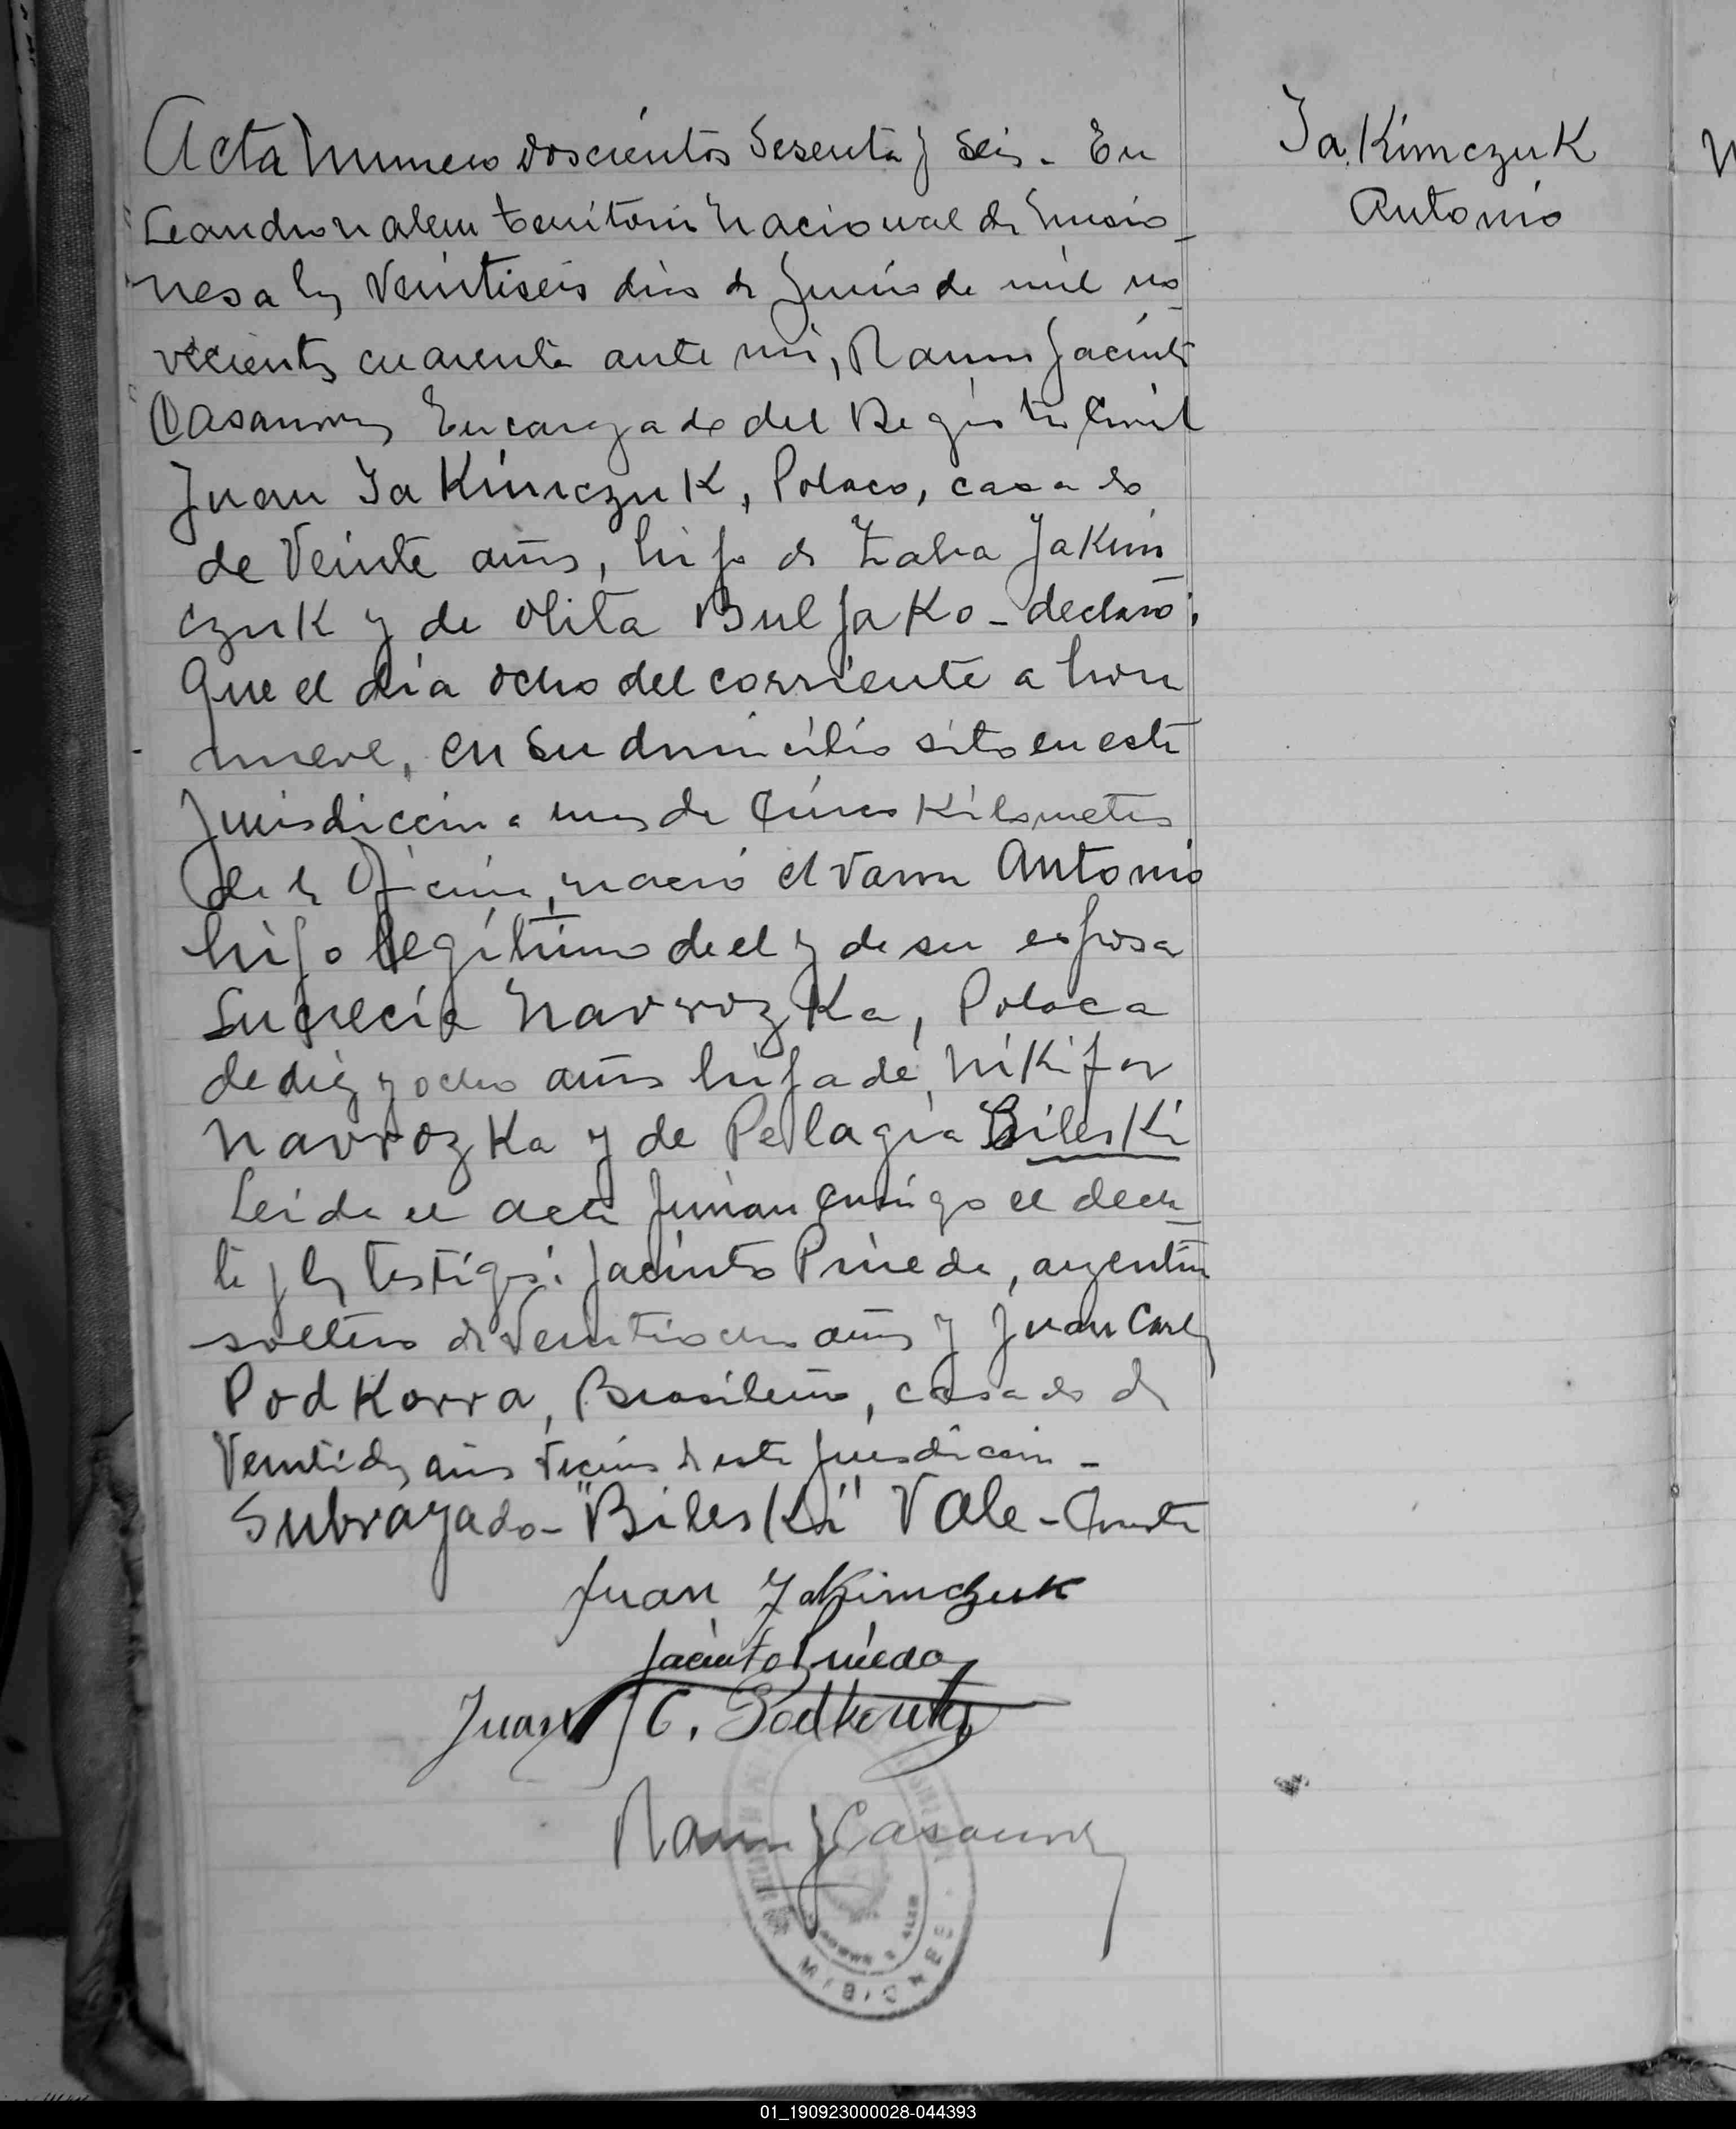 Acta Numero doscientos Sesenta y Seis. En
Leandro N alem territorio Nacional de Misio-
nes a los Veintiseis dias de Junio de mil no-
vecientos cuarenta ante mi, Ramon Jacinto
Casanova Encargado del Registro Civil
Juan JaKimczuK, Polaco, casado
de Veinte años, hijo de Zaha JaKim
czuK y de Olita BulJaKo - declaró:
Que el día ocho del corriente a hora
nueve, en su domicilio sito en esta
Jurisdiccion a mas de Cinco Kilometros
de la Oficina, nació el varon Antonio
hijo legítimo de el y de su esposa
Lucrecia NavrozKa, Polaca
de diez y ocho años hija de NiKifor
NavrozKa y de Pelagia BilesKi
Leida el acta firman conmigo el decla-
te y los testigos: Jacinto Prieda, argentino
soltero de Veintiocho años y Juan Carlos
PodKorra, Brasileño, casado de
Veintidos años vecinos de esta Jurisdiccion -
Subrayado - "BilesKi" Vale - Conste
Juan JaKimczuk
Jacinto Prieda
Juan C.
Ramon J Casanova
MISIONES
JaKimczuK
Antonio
01_190923000028-044393